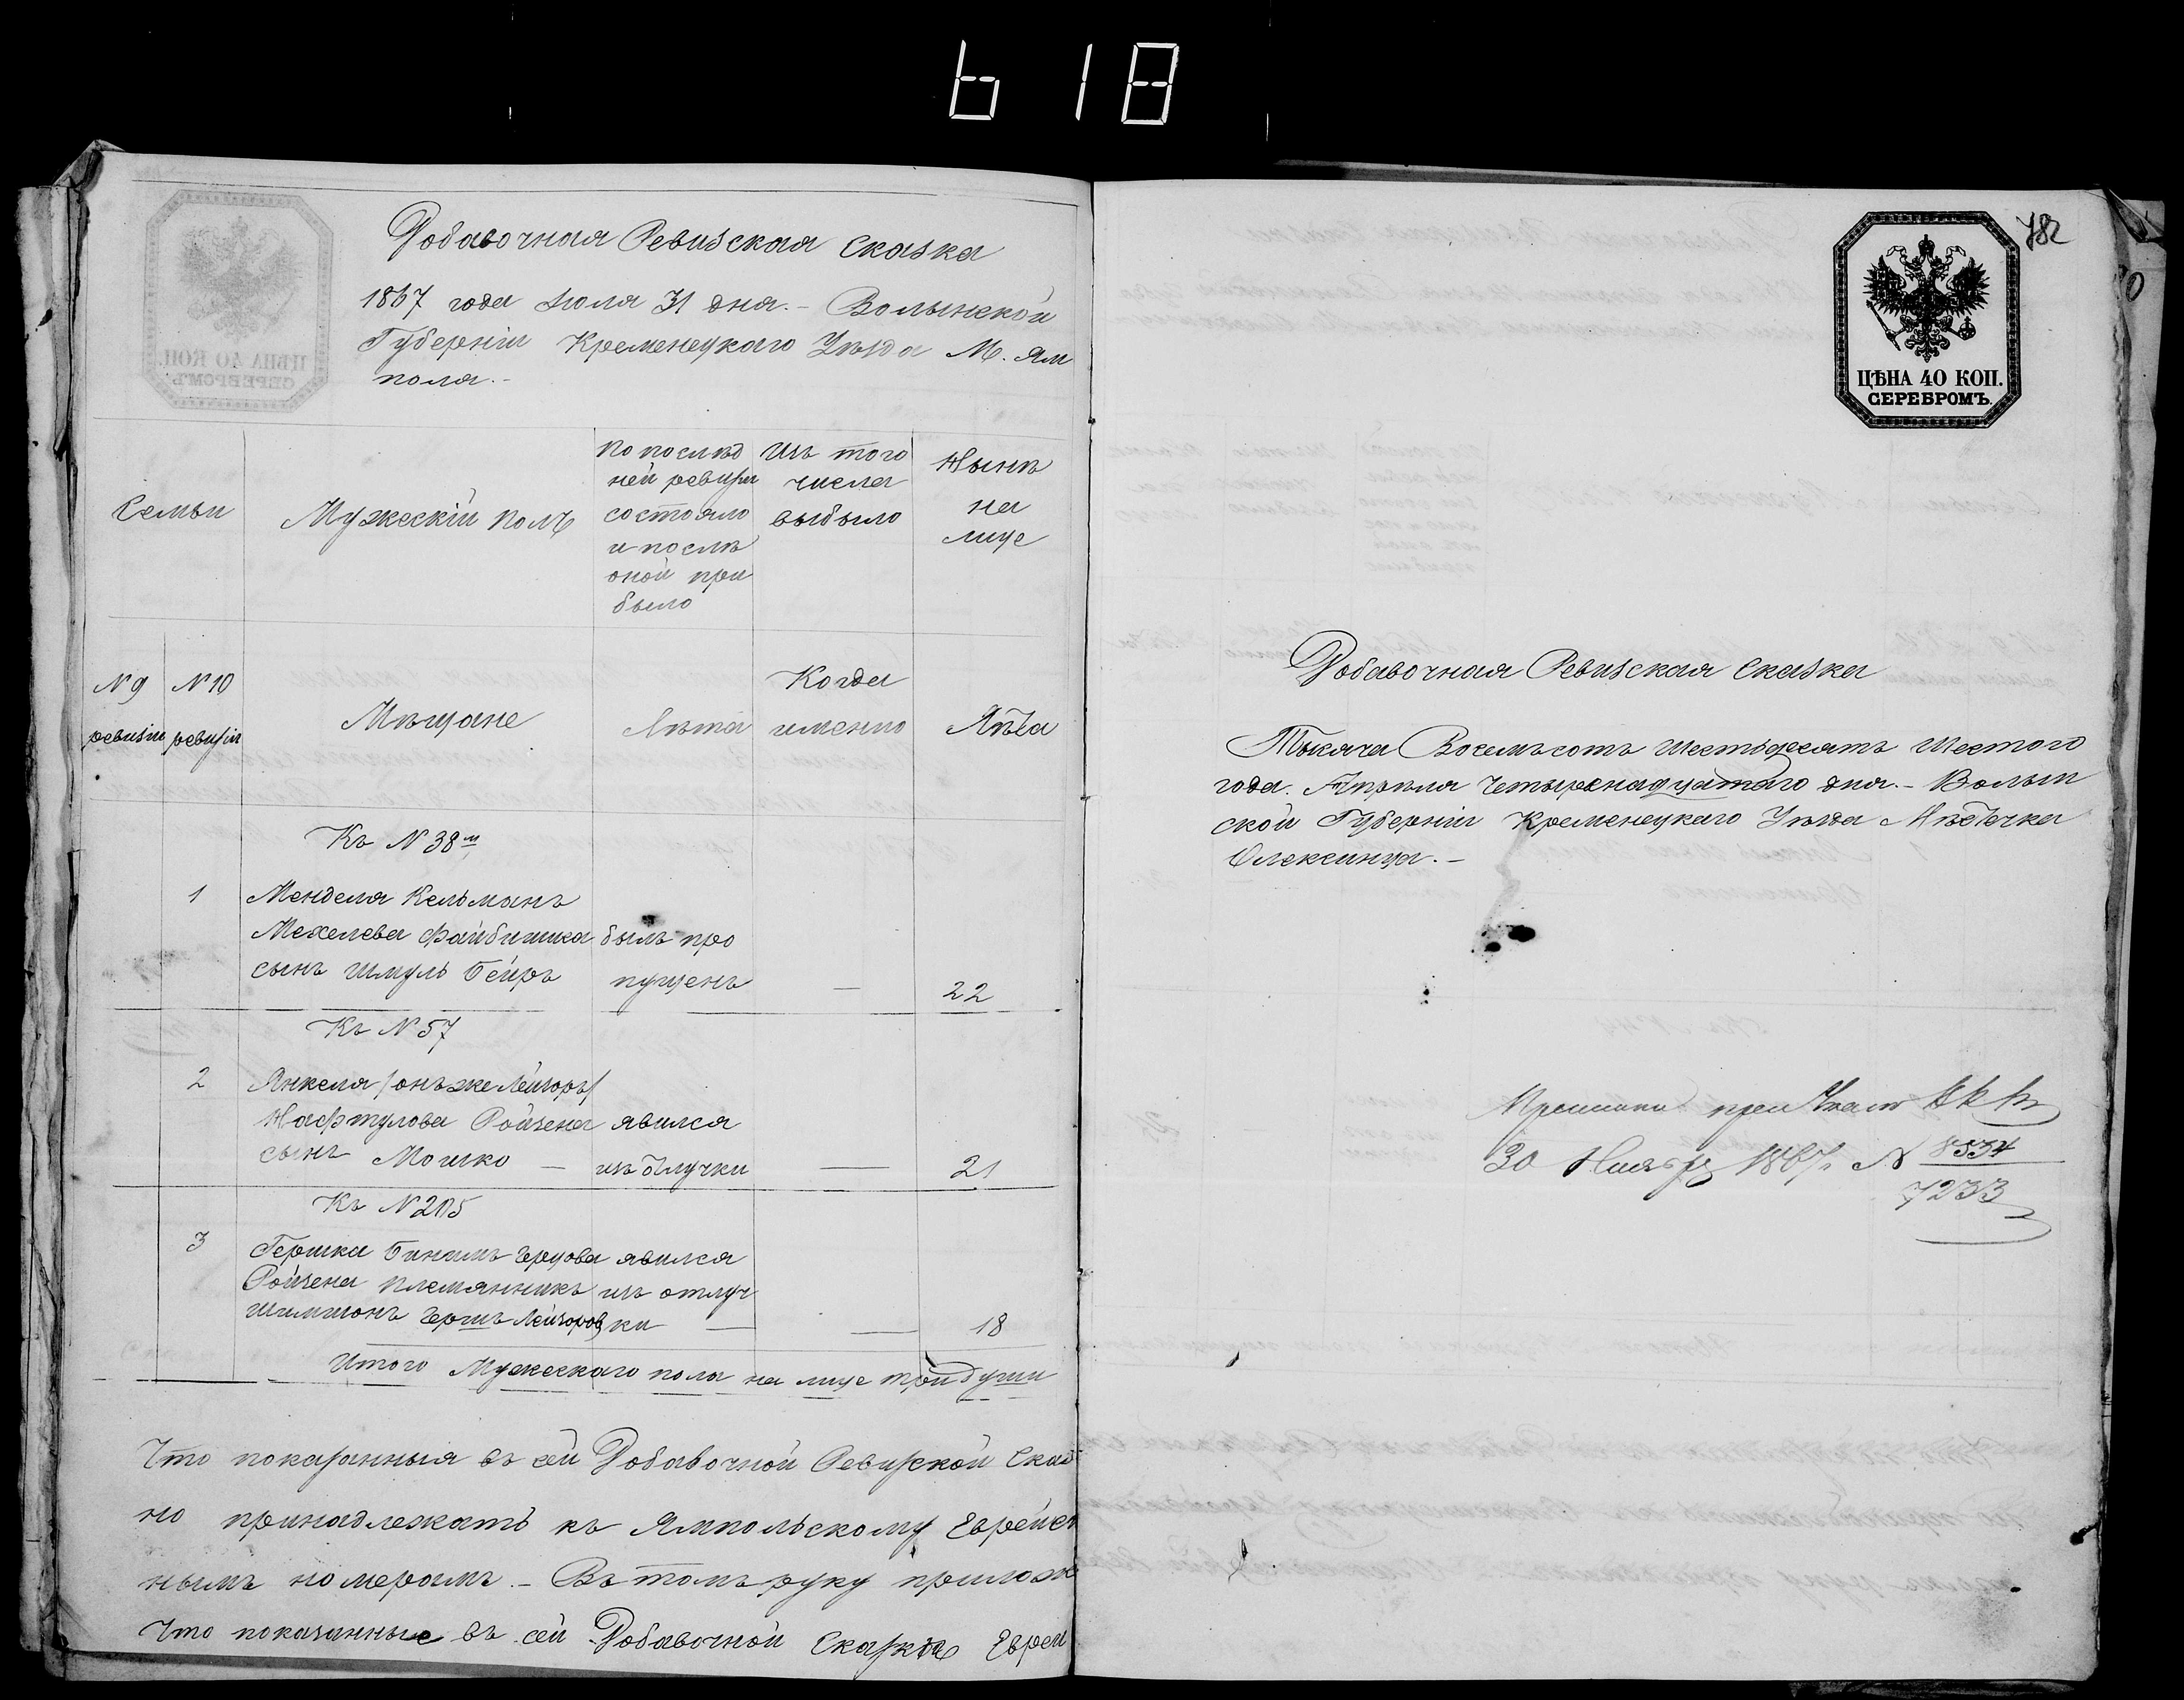 618
Добавочная Ревизская Сказка
1867 года Іюля 31 дня. – Волынской
Губерніи Кременецкаго Уѣзда М. Ям
поля. –
Семьи
Мужескій полъ
По послѣд
ней ревизіи
состояло
и послѣ
оной при
было
Изъ того
числа
выбыло
Нынѣ
на
лице
N 9
ревизіи
N 10
ревизіи
Мѣщане
Лѣта
Когда
именно
Лѣта
Къ N 38 м
1
Менделя Кельманъ
Мехелева Файбишика былъ про
сынъ Шмуль Беиръ пущенъ — 22
Къ N 57
2
Янкеля /онъ же Лейзоръ/
Нафтулова Ройзена явился
сынъ Мошко — изъ отлучки — 21
Къ N 205
3
Гершка Бинемъ Герцова явился
Ройзена племянникъ изъ отлуч
Шимшонъ Гершъ Лейзоров ки — — 18
Итого Мужескаго пола на лице три души
Что показанныя въ сей Добавочной Ревизкой Сказ
но принадлежатъ къ Ямпольскому Еврейск
нымъ номерамъ. – Въ томъ руку прилож
Что показанные въ сей Добавочной Сказкѣ Евреи
782
ЦѢНА 40 КОП.
СЕРЕБРОМЪ.
Добавочная Ревизская Сказка
Тысяча Восемьсотъ Шестьдесятъ Шестого
года. Апрѣля Четырнадцатаго дня. – Волын
ской Губерніи Кременецкаго Уѣзда Мѣстечка
Олексинца. –
при
30 Ноября 1867 г. N 8534
7233